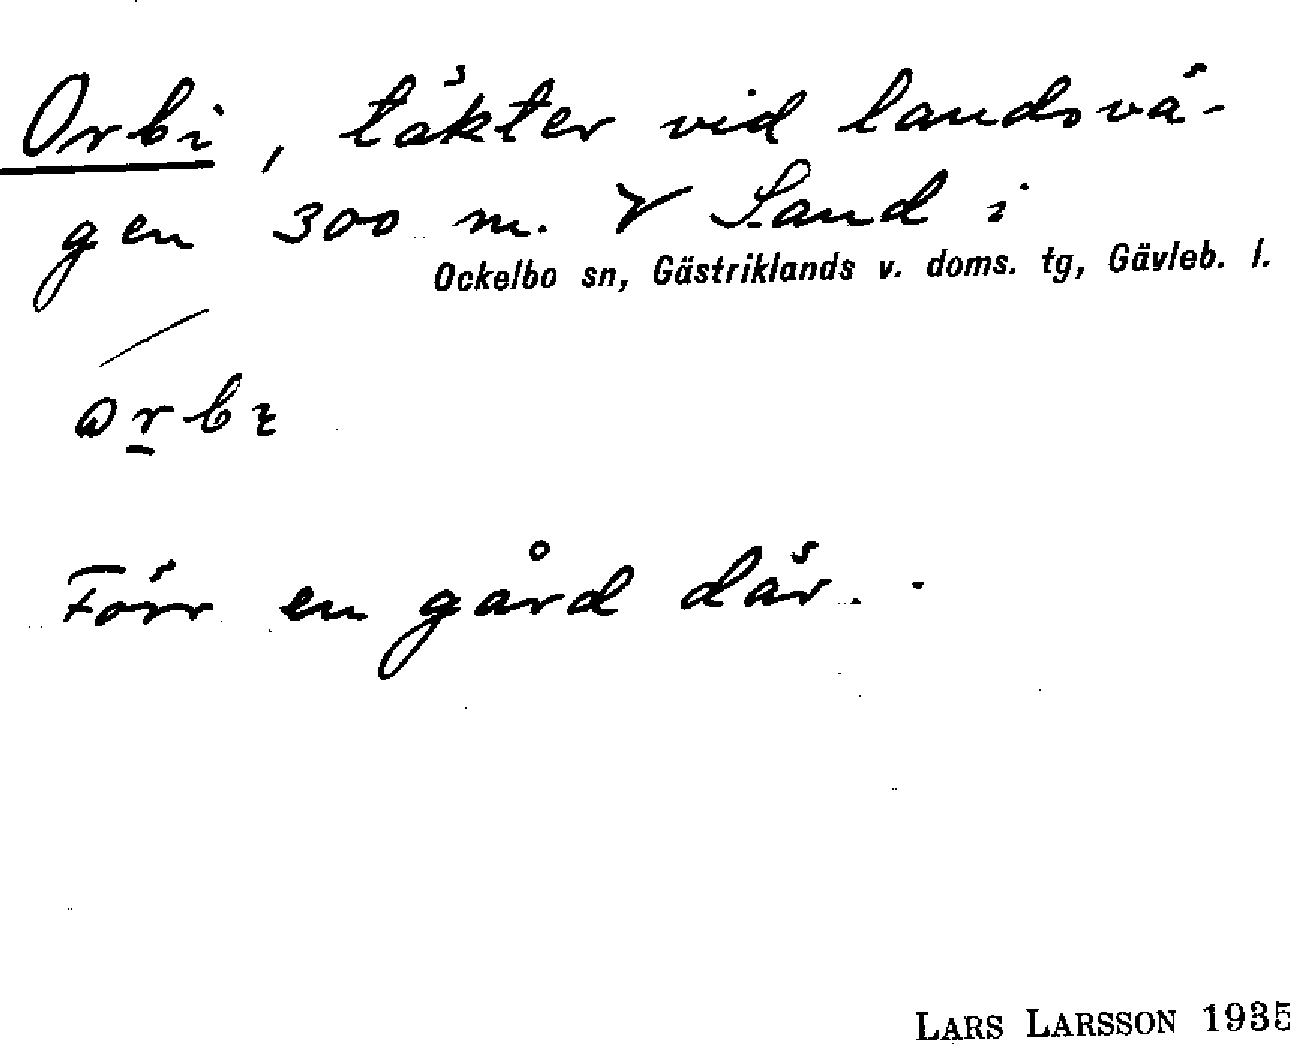 Orbi, täkter vid landsvä-
gen 300 m. V Sand i
Ockelbo sn, Gästriklands v. doms. tg, Gävleb. l.
Förr en gård där.
LARS LARSSON 1935